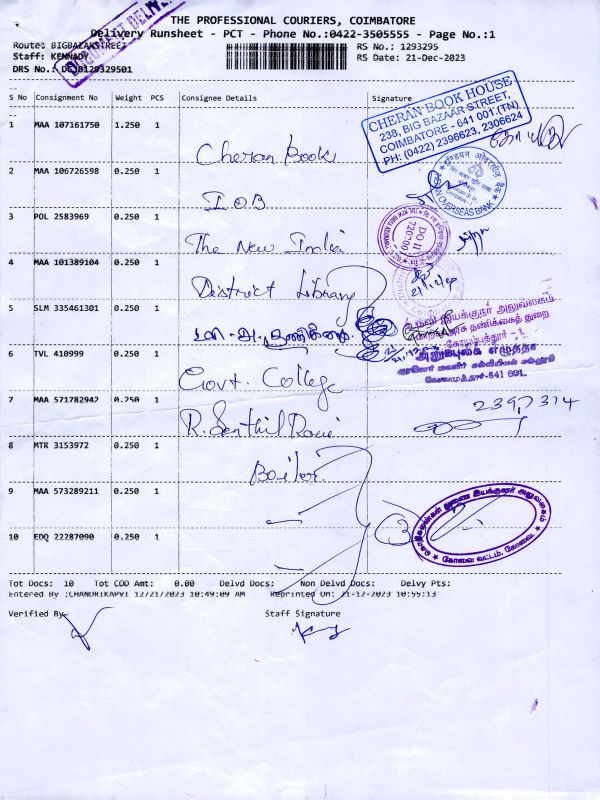 THE PROFESSIONAL COURIERS, COIMBATORE
Delivery Runsheet - PCT - Phone No.:0422-3505555 - Page No.:1
Route: BIGBAZARSTREET
RS No.: 1293295
Staff: KENNADY
RS Date: 21-Dec-2023
DRS No.:
S No Consignment No Weight PCS Consignee Details Signature
CHERAN BOOK HOUSE
238, BIG BAZAAR STREET,
COIMBATORE - 641 001.(TN)
PH: (0422) 2396623, 2306624
1 MAA 107161750 1.250 1 Cheran Book
2 MAA 106726598 0.250 1 I.O.B
இண்டியன் ஓவர்சீஸ்
INDIAN OVERSEAS BANK
3 POL 2583969 0.250 1 The New India
DO II
720700
4 MAA 101389104 0.250 1 District Library
21/12/23
5 SLM 335461301 0.250 1
உதவி இயக்குநர் அலுவலகம்
தணிக்கைத் துறை
கோயம்புத்தூர் - 1.
6 TVL 410999 0.250 1 Govt. College
கோயமுத்தூர்-641 001.
7 MAA 571782942 0.250 1 R. Senthil Rani
2397314
8 MTR 3153972 0.250 1 Boiler
9 MAA 573289211 0.250 1
3
துணை இயக்குநர் அலுவலகம்
கோவை வட்டம், கோவை.
10 EDQ 22287090 0.250 1
Tot Docs: 10 Tot COD Amt: 0.00 Delvd Docs: Non Delvd Docs: Delvy Pts:
Entered By :CHANDRIKAPVI 12/21/2023 10:49:09 AM Reprinted On: 21-12-2023 10:55:13
Verified By
Staff Signature